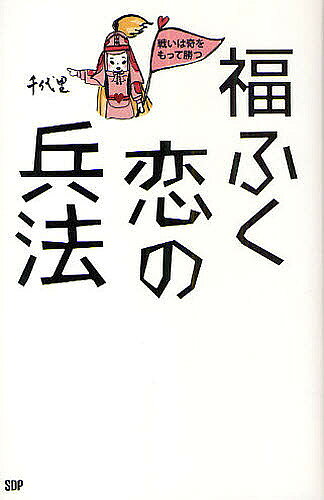 福ふく
恋の
兵法
戦いは奇を
もって勝つ
千代里
SDP